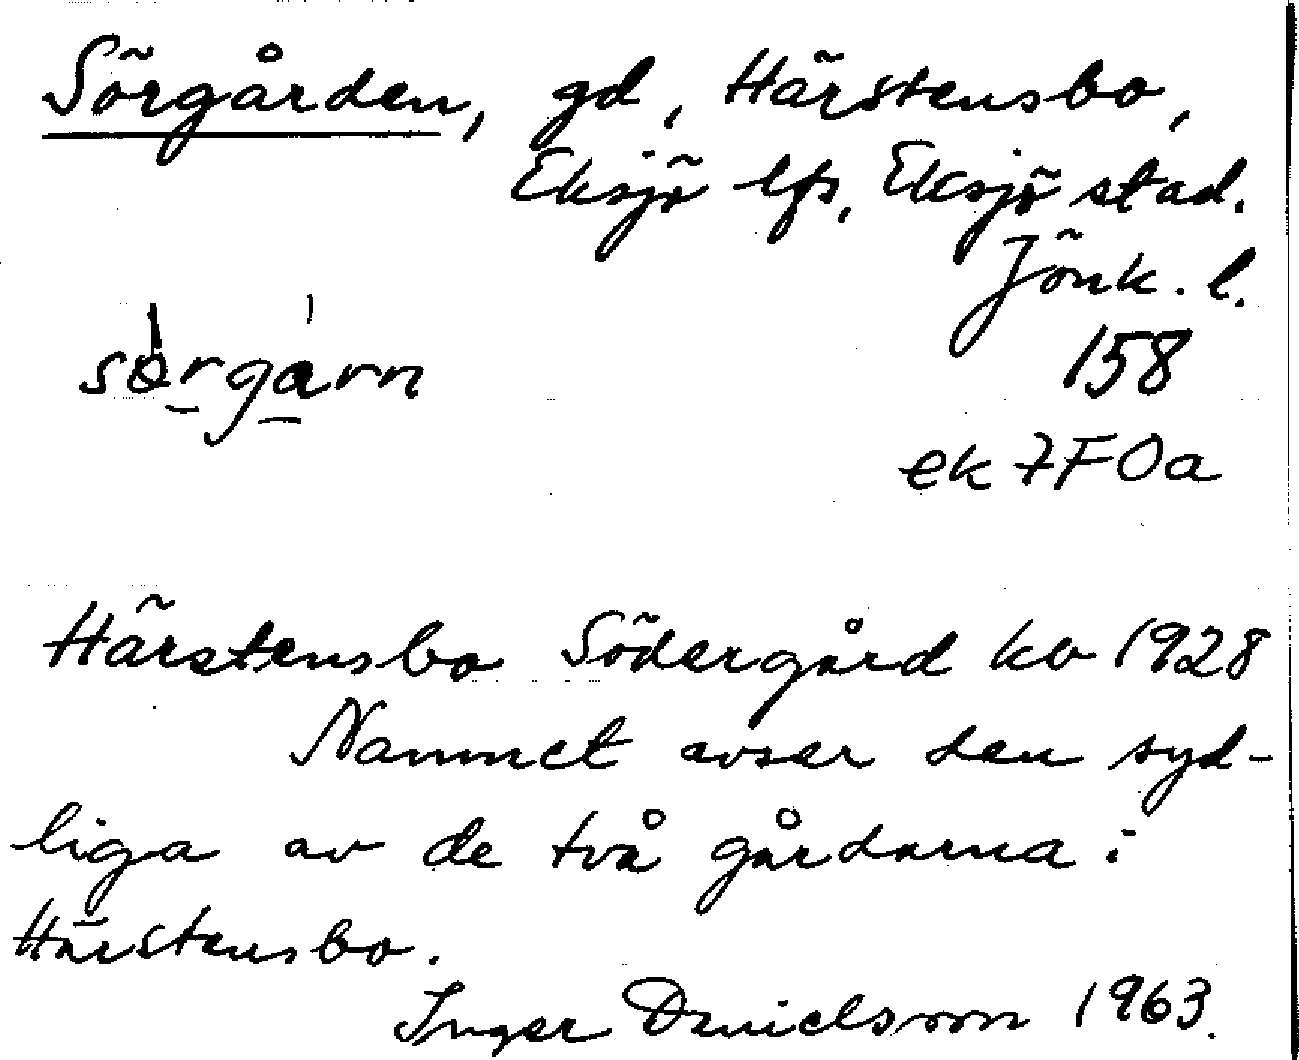 Sörgården, gd, Härstensbo,
Eksjö lfs, Eksjö stad.
Jönk. l.
sørgarn
158
ek 7F0a
Härstensbo Södergård kb 1928
Namnet avser den syd-
liga av de två gårdarna i
Härstensbo.
Inger Danielsson 1963.